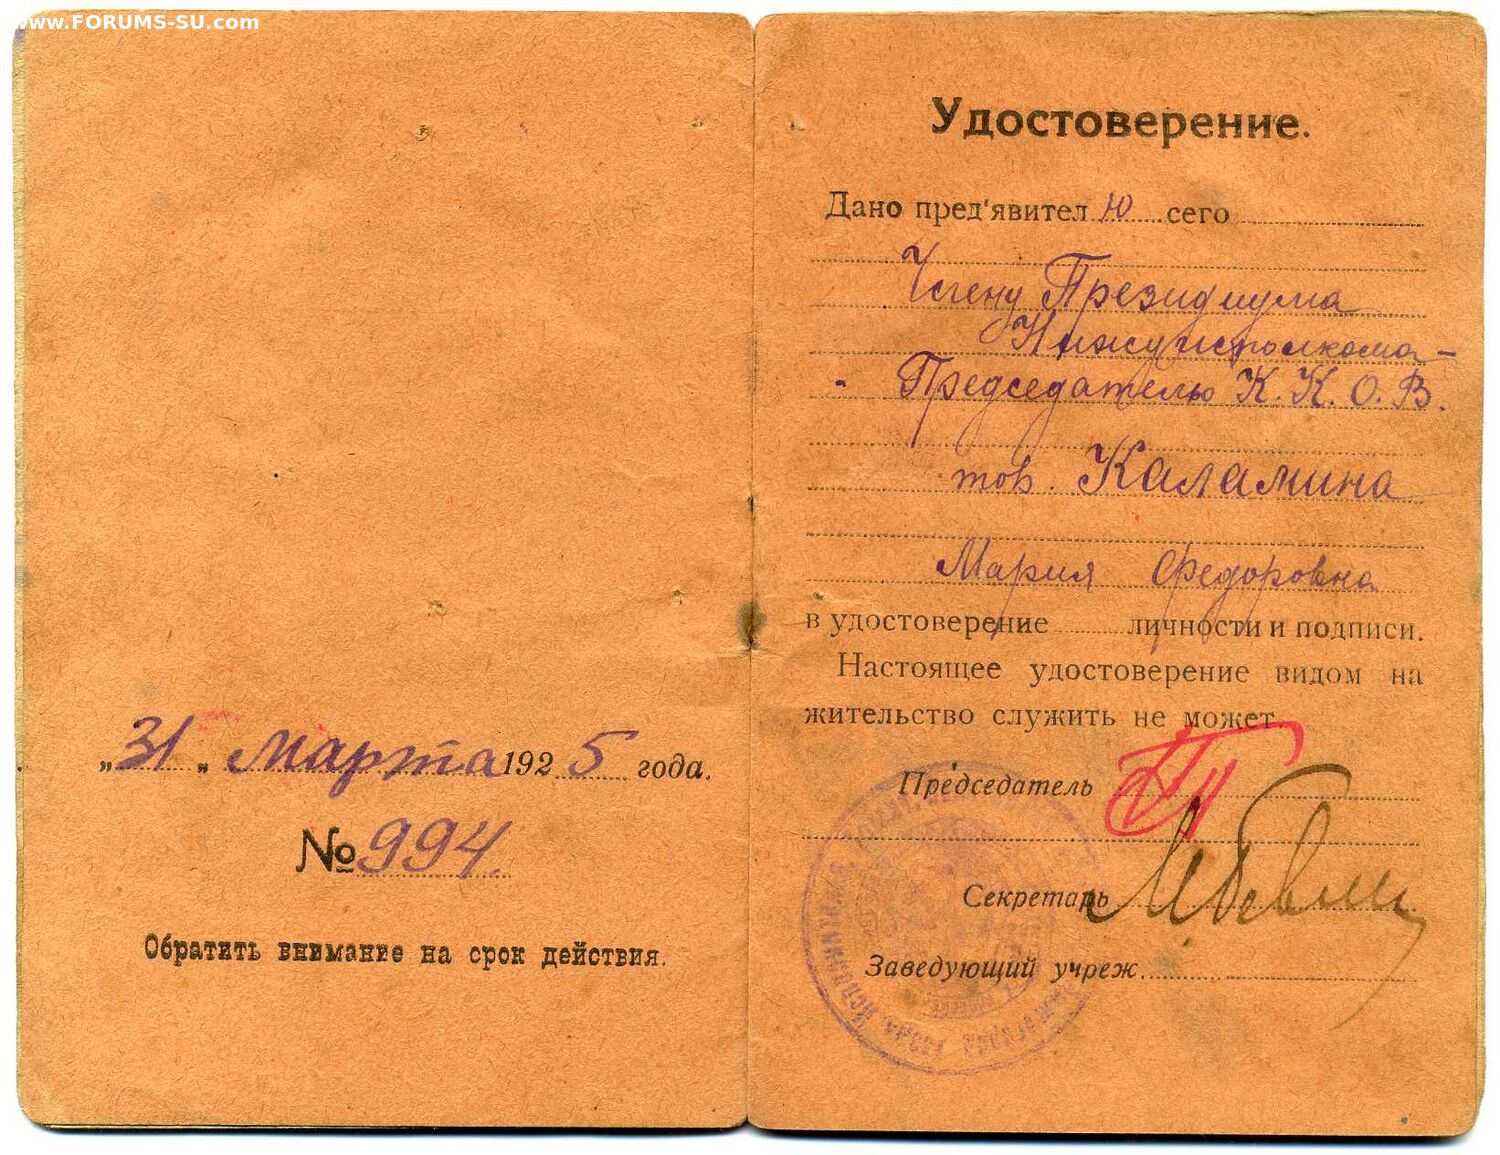 www.FORUMS-SU.com
„31„ Марта 1925 года.
№ 994.
Обратить внимание на срок действия.
Удостоверение.
Дано пред'явителю сего
Члену Президиума
Нижуисполкома-
Председателю К.К.О.В.
тов. Каламина
Мария Федоровна
в удостоверение личности и подписи.
Настоящее удостоверение видом на
жительство служить не может.
Председатель
Секретарь
Заведующий учреж.